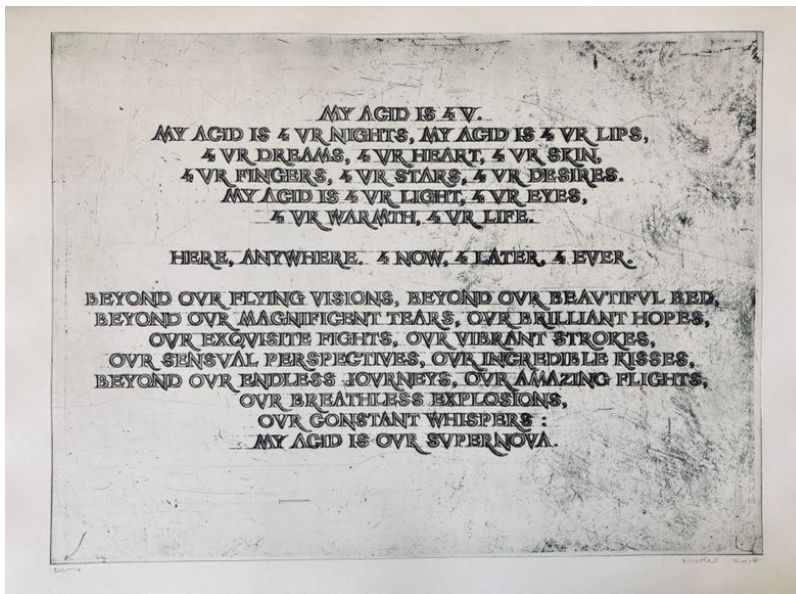 MY ACID IS 4 V.
MY ACID IS 4 VR NIGHTS, MY ACID IS 4 VR LIPS,
4 VR DREAMS, 4 VR HEART, 4 VR SKIN,
4 VR FINGERS, 4 VR STARS, 4 VR DESIRES.
MY ACID IS 4 VR LIGHT, 4 VR EYES,
4 VR WARMTH, 4 VR LIFE.
HERE, ANYWHERE. 4 NOW, 4 LATER, 4 EVER.
BEYOND OVR FLYING VISIONS, BEYOND OVR BEAVTIFVL BED,
BEYOND OVR MAGNIFICENT TEARS, OVR BRILLIANT HOPES,
OVR EXQVISITE FIGHTS, OVR VIBRANT STROKES,
OVR SENSVAL PERSPECTIVES, OVR INCREDIBLE KISSES,
BEYOND OVR ENDLESS JOVRNEYS, OVR AMAZING FLIGHTS,
OVR BREATHLESS EXPLOSIONS,
OVR CONSTANT WHISPERS :
MY ACID IS OVR SVPERNOVA.